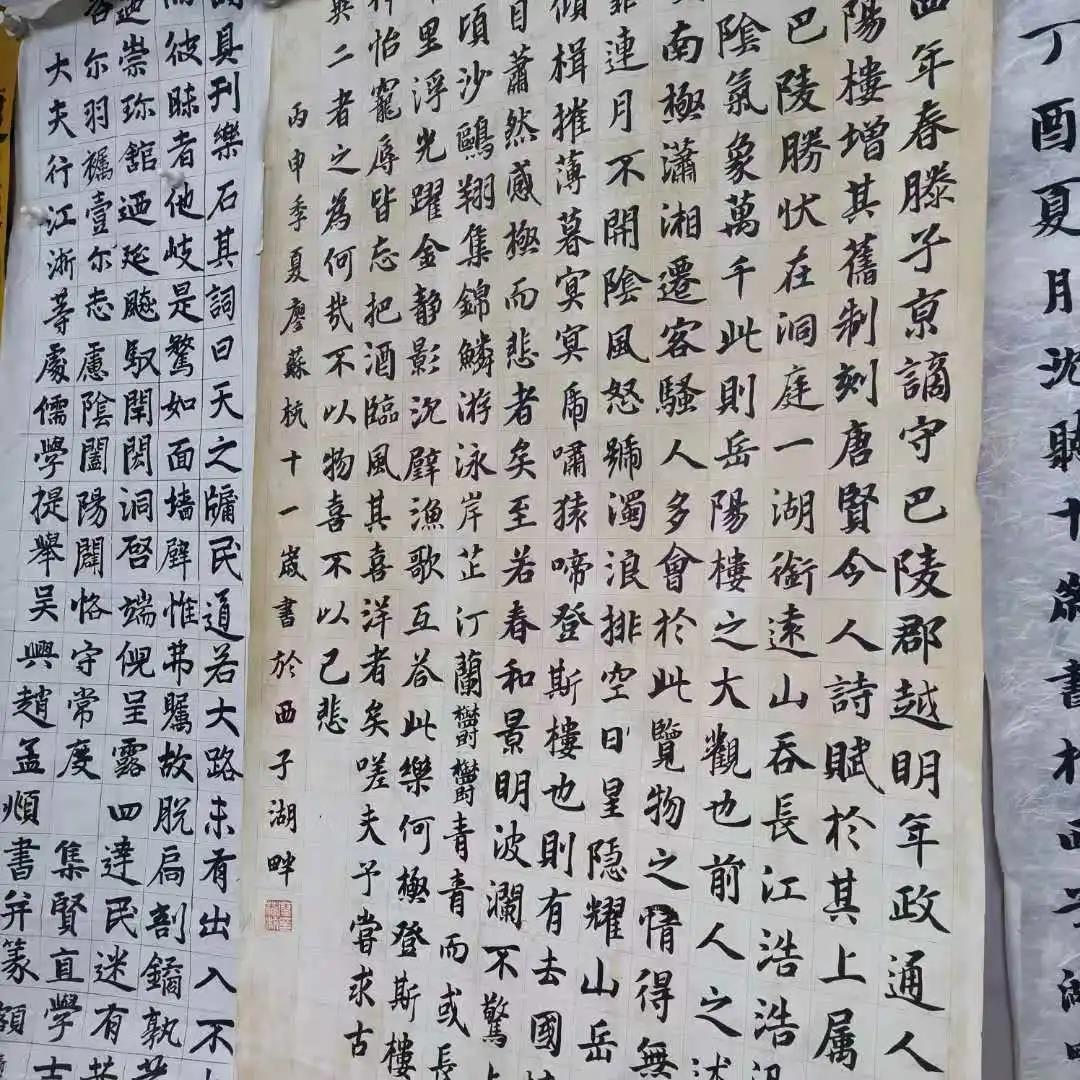 丁酉夏月沈聽十歲書於西子湖
四年春滕子京謫守巴陵郡越明年政通人
陽樓增其舊制刻唐賢今人詩賦於其上属
巴陵勝状在洞庭一湖銜遠山吞長江浩浩
陰氣象萬千此則岳陽樓之大觀也前人之述
南極瀟湘遷客騷人多會於此覽物之情得無
霏連月不開陰風怒號濁浪排空日星隱耀山岳
傾楫摧薄暮冥冥虎嘯猿啼登斯樓也則有去國
目蕭然感極而悲者矣至若春和景明波瀾不驚
頃沙鷗翔集錦鱗游泳岸芷汀蘭鬱鬱青青而或長
里浮光躍金静影沉璧漁歌互答此樂何極登斯樓
怡寵辱皆忘把酒臨風其喜洋者矣嗟夫予嘗求古
異二者之為何哉不以物喜不以己悲
丙申季夏廖蘇杭十一歲書於西子湖畔
具刊樂石其詞曰天之牖民道若大路未有出入不
彼昧者他岐是騖如面墙壁惟弗矚故脱扃剖鐍孰
崇珎舘迺延飈馭閈閎洞啓端倪呈露四達民迷有
尔羽襹壹尔志慮陰闔陽闢恪守常度 集賢直學士
大夫行江浙等處儒學提舉吴興趙孟頫書并篆額